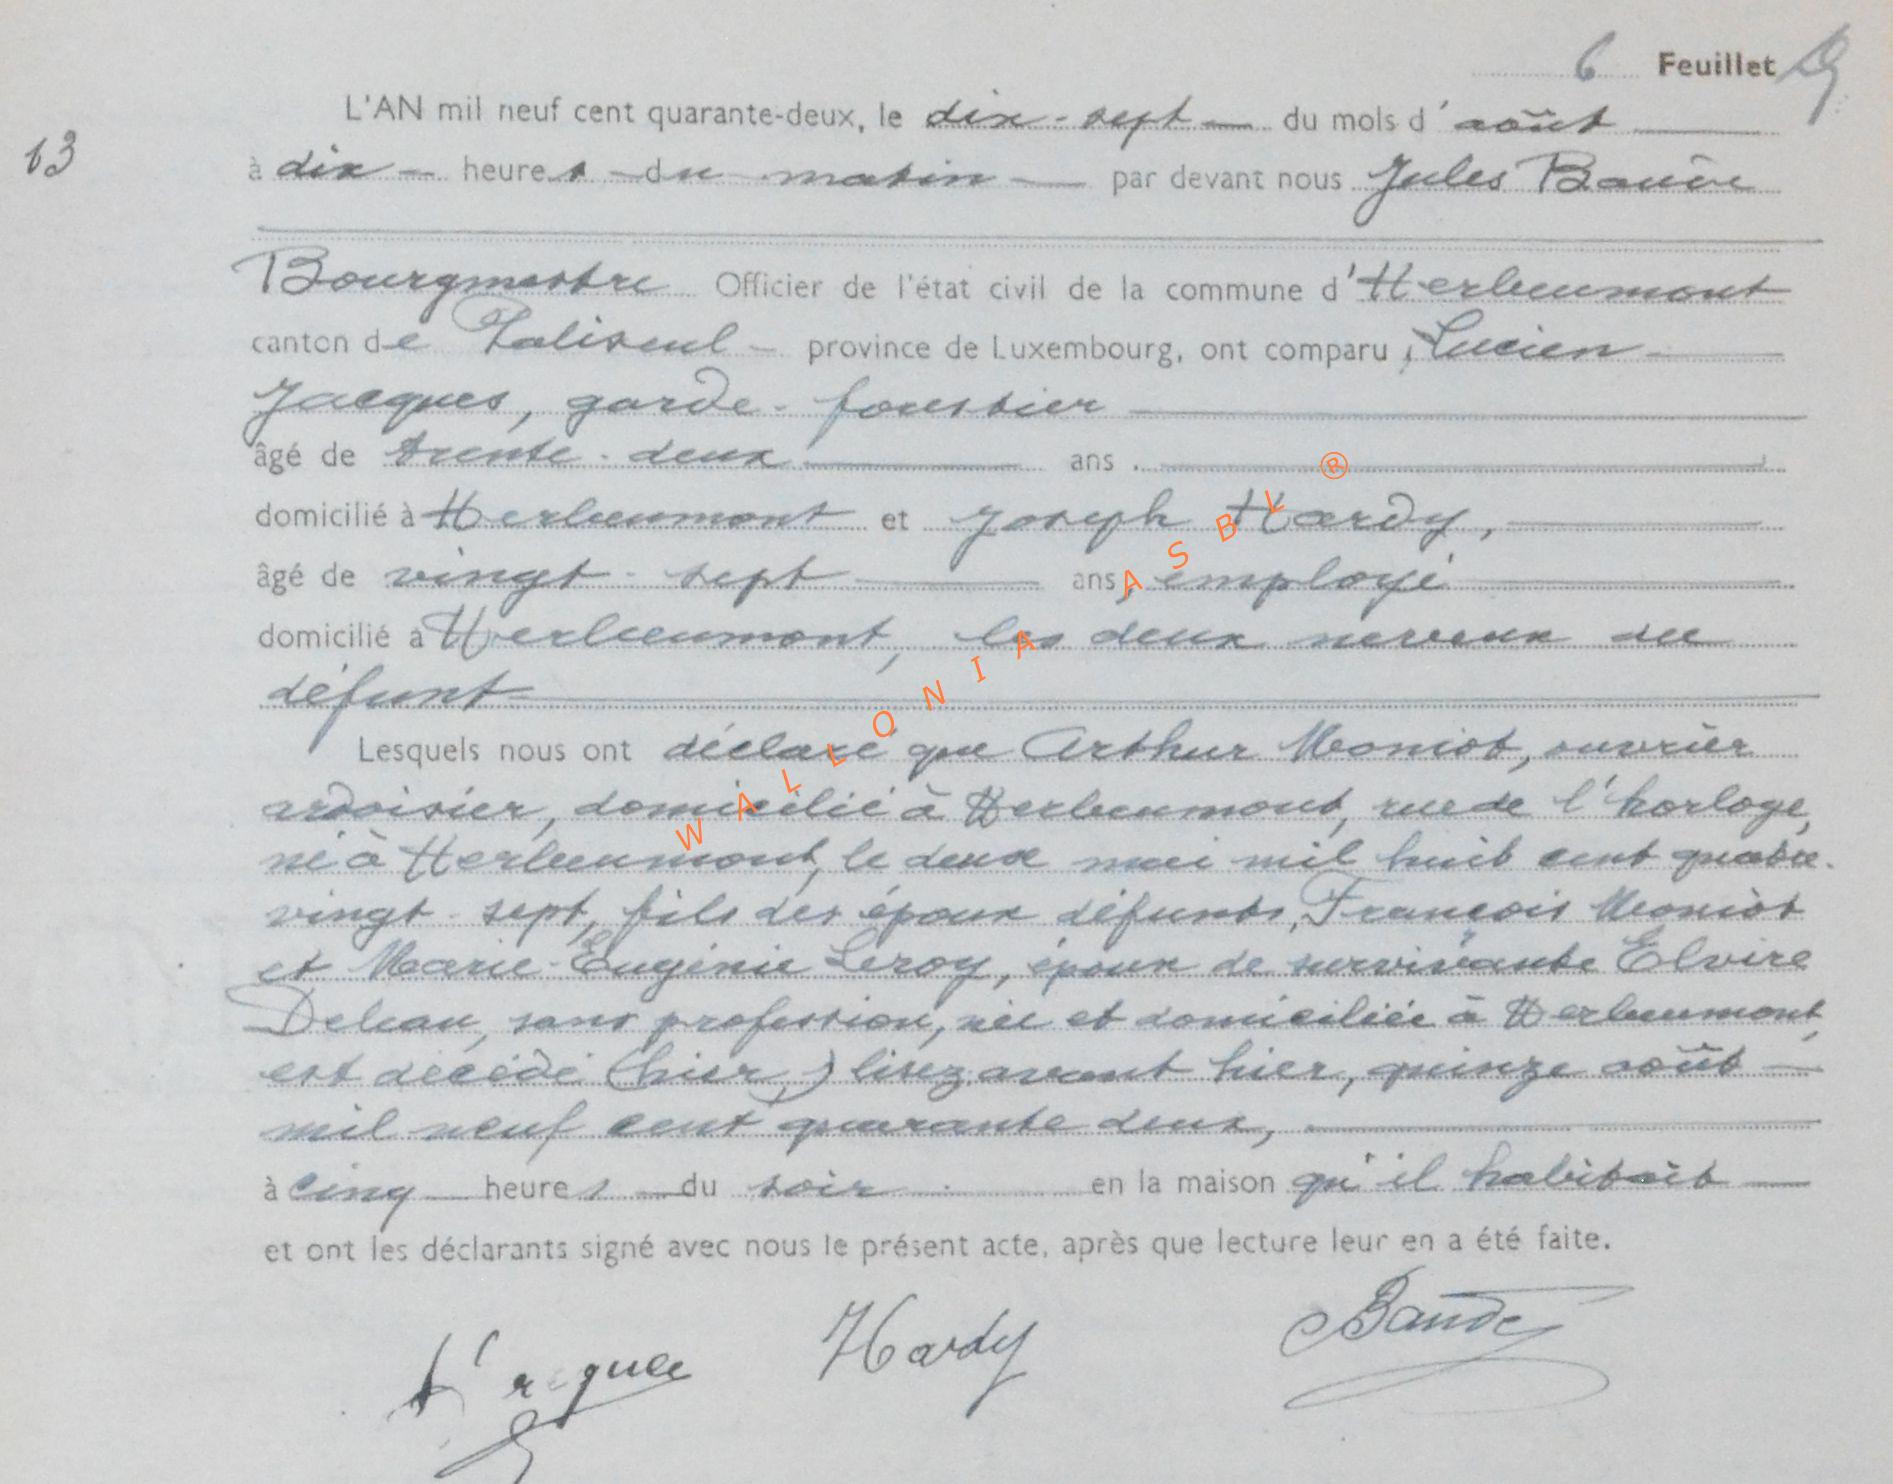 6 Feuillet
L'AN mil neuf cent quarante-deux, le dix-sept du mois d'août
13
à dix heures du matin par devant nous Jules
Bourgmestre Officier de l'état civil de la commune d'Herbeumont
canton de Paliseul - province de Luxembourg, ont comparu, Lucien
Jacques, garde-forestier
âgé de trente-deux ans.
domicilié à Herbeumont et Joseph Hardy,
âgé de vingt-sept ans, employé
domicilié à Herbeumont, les deux neveux du
défunt
Lesquels nous ont déclaré que Arthur Moniot, ouvrier
ardoisier, domicilié à Herbeumont, rue de l'horloge,
né à Herbeumont, le deux mai mil huit cent quatre-
vingt-sept, fils des époux défunts, François Moniot
et Marie-Eugénie Leroy, époux de survivante Elvire
Deleau, sans profession, née et domiciliée à Herbeumont,
est décédé (hier,) lisez avant hier, quinze août
mil neuf cent quarante deux,
à cinq heures du soir en la maison qu'il habitait
et ont les déclarants signé avec nous le présent acte, après que lecture leur en a été faite.
Jacques Hardy
WALLONIA ASBL ®